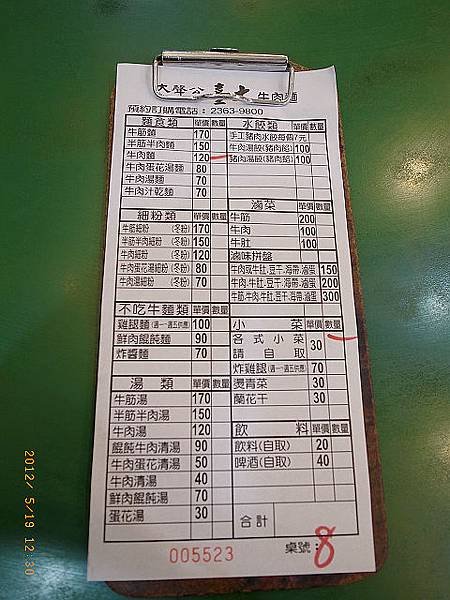 大聲公 牛肉麵
預約訂購電話：2363-9800
麵食類 單價 數量
牛筋麵 170
半筋半肉麵 150
牛肉麵 120
牛肉蛋花湯麵 80
牛肉湯麵 70
牛肉汁乾麵 70
細粉類 單價 數量
牛筋細粉 (冬粉) 170
半筋半肉細粉 (冬粉) 150
牛肉細粉 (冬粉) 120
牛肉蛋花湯細粉 (冬粉) 80
牛肉湯細粉 (冬粉) 70
不吃牛麵類 單價 數量
雞腿麵(週一~週五供應) 100
鮮肉餛飩麵 90
炸醬麵 70
湯類 單價 數量
牛筋湯 170
半筋半肉湯 150
牛肉湯 120
餛飩牛肉清湯 90
牛肉蛋花清湯 50
牛肉清湯 40
鮮肉餛飩湯 70
蛋花湯 30
水餃類 單價 數量
手工豬肉水餃每個7元
牛肉湯餃(豬肉餡) 100
豬肉湯餃(豬肉餡) 100
滷菜 單價 數量
牛筋 200
牛肉 100
牛肚 100
滷味拼盤
牛肉或牛肚.豆干.海帶.滷蛋 150
牛肉.牛肚.豆干.海帶.滷蛋 200
牛筋.牛肉.牛肚.豆干.海帶.滷蛋 300
小菜 單價 數量
各式小菜 30
請自取
炸雞腿(週一~週五供應) 70
燙青菜 30
蘭花干 30
飲料 單價 數量
飲料(自取) 20
啤酒(自取) 40
合計
005523 桌號：8
2012/ 5/19 12:30